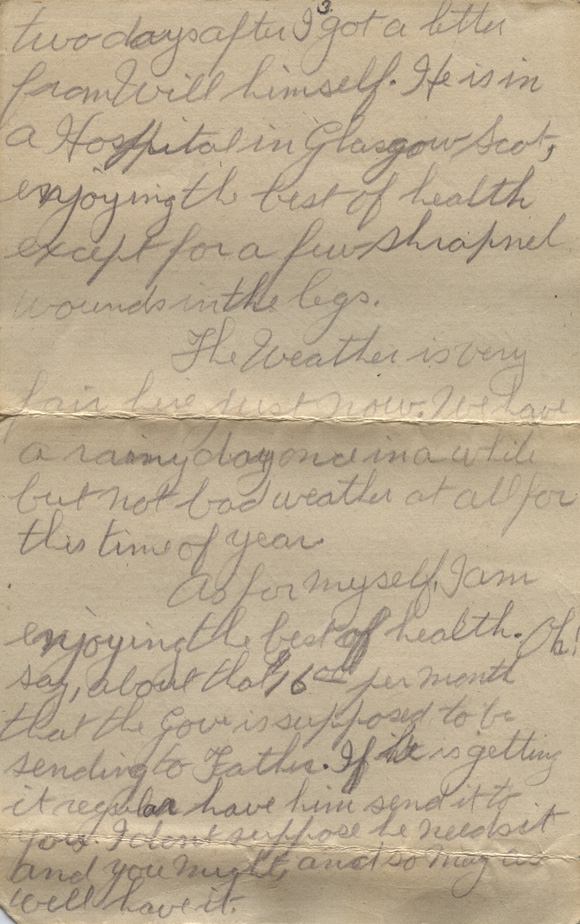 3.
two days after I got a letter
from Will himself. He is in
a Hospital in Glasgow Scot,
enjoying the best of health
except for a few shrapnel
wounds in the legs.
The Weather is very
fair here just now. We have
a rainy day once in a while
but not bad weather at all for
this time of year.
As for myself, I am
enjoying the best of health. Oh!
say, about that 16 00 per month
that the Gov is supposed to be
sending to Father. If he is getting
it regular have him send it to
you. I dont suppose he needs it
and you might, and so may as
well have it.